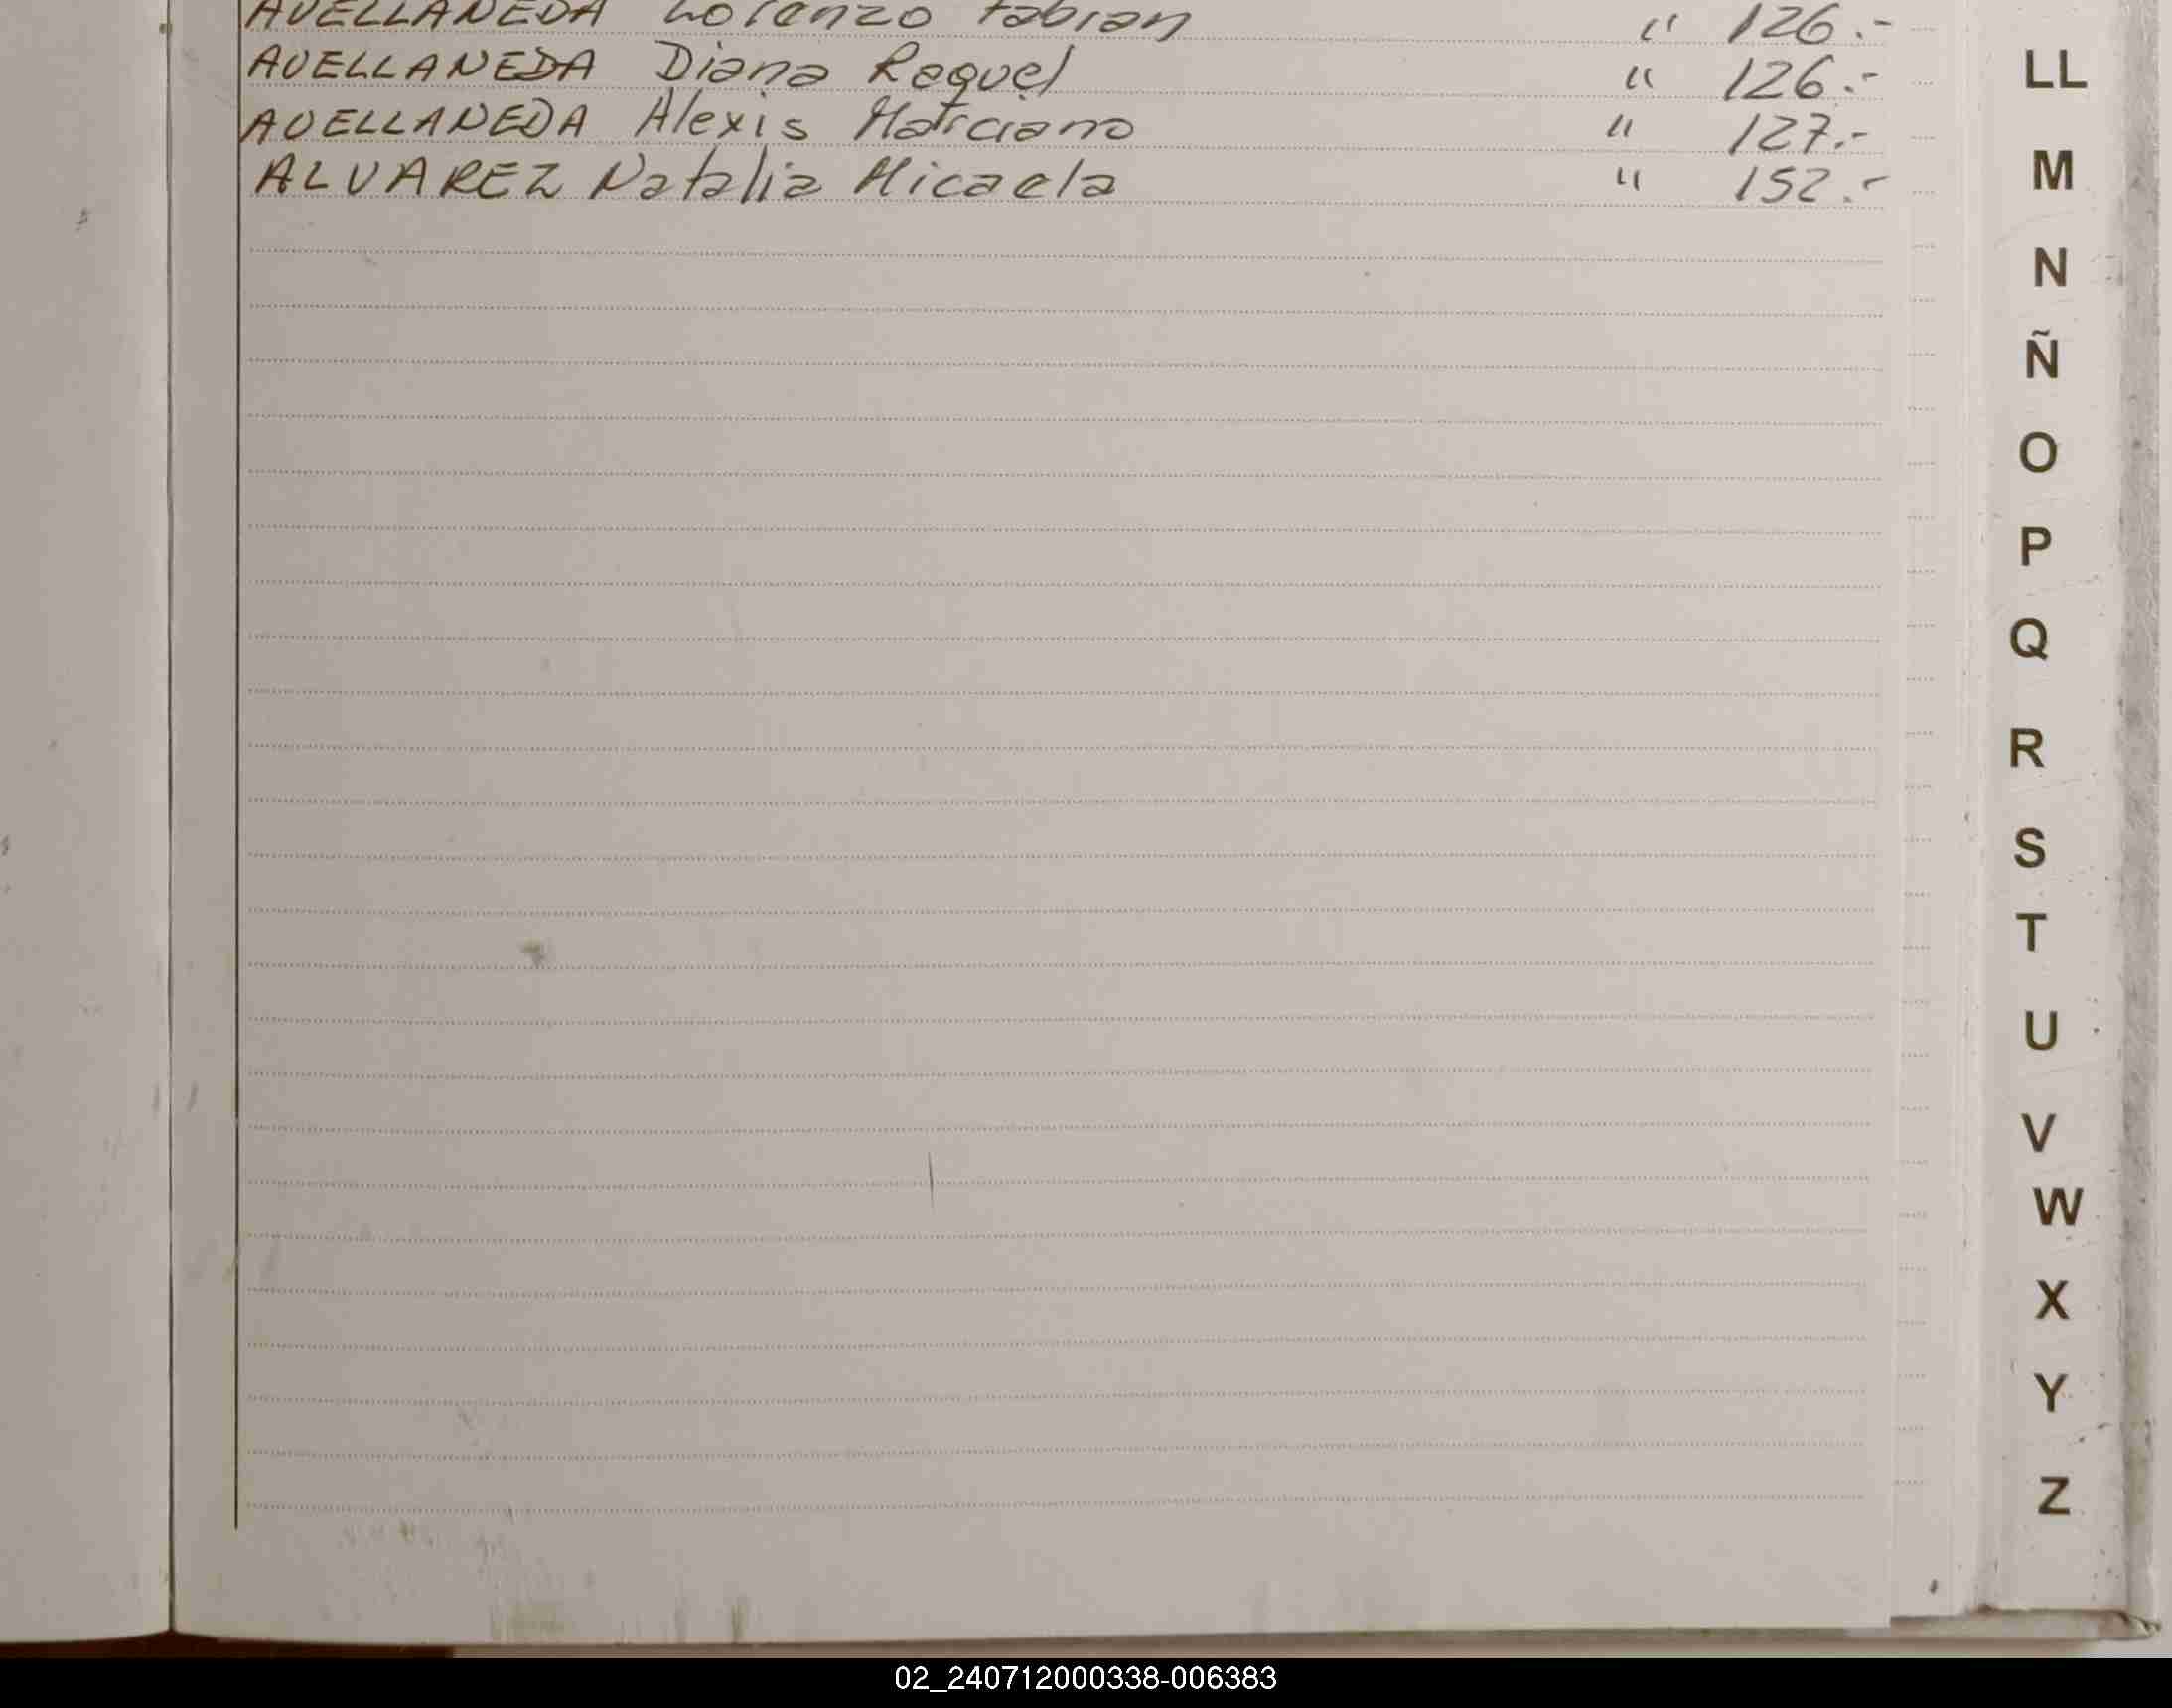 AVELLANEDA Lorenzo Fabian " 126.-
AVELLANEDA Diana Raquel " 126.-
AVELLANEDA Alexis Marciano " 127.-
ALVAREZ Natalia Micaela " 152.-
LL
M
N
Ñ
O
P
Q
R
S
T
U
V
W
X
Y
Z
02_240712000338-006383